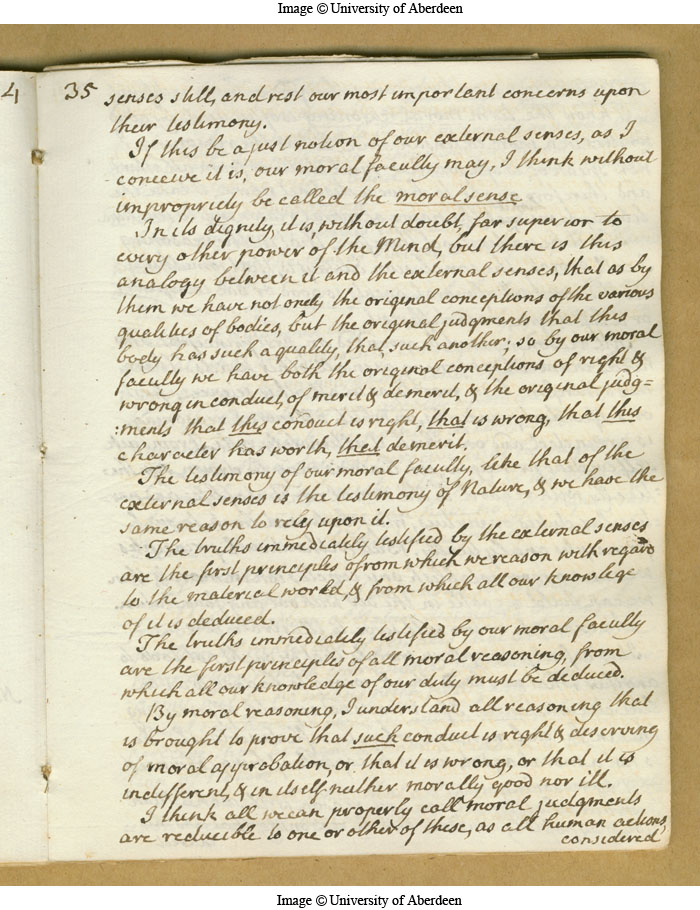 Image © University of Aberdeen
4
35
senses still, and rest our most important concerns upon
their testimony.
If this be a just notion of our external senses, as I
conceive it is, our moral faculty may, I think without
impropriety be called the moral sense
In its dignity, it is, without doubt, far superior to
every other power of the Mind, but there is this
analogy between it and the external senses, that as by
them we have not only the original conceptions of the various
qualities of bodies, but the original judgments that this
body has such a quality, that, such another; so by our moral
faculty we have both the original conceptions of right &
wrong in conduct, of merit & demerit, & the original judg=
:ments that this conduct is right, that is wrong, that this
character has worth, that demerit.
The testimony of our moral faculty, like that of the
external senses is the testimony of Nature, & we have the
same reason to rely upon it.
The truths immediately testified by the external senses
are the first principles from which we reason with regard
to the material world, & from which all our knowlege
of it is deduced.
The truths immediately testified by our moral faculty
are the first principles of all moral reasoning, from
which all our knowledge of our duty must be deduced.
By moral reasoning, I understand all reasoning that
is brought to prove that such conduct is right & deserving
of moral approbation, or that it is wrong, or that it is
indifferent, & in itself neither morally good nor ill.
I think all we can properly call moral judgments
are reducible to one or other of these, as all human actions,
considered
Image © University of Aberdeen